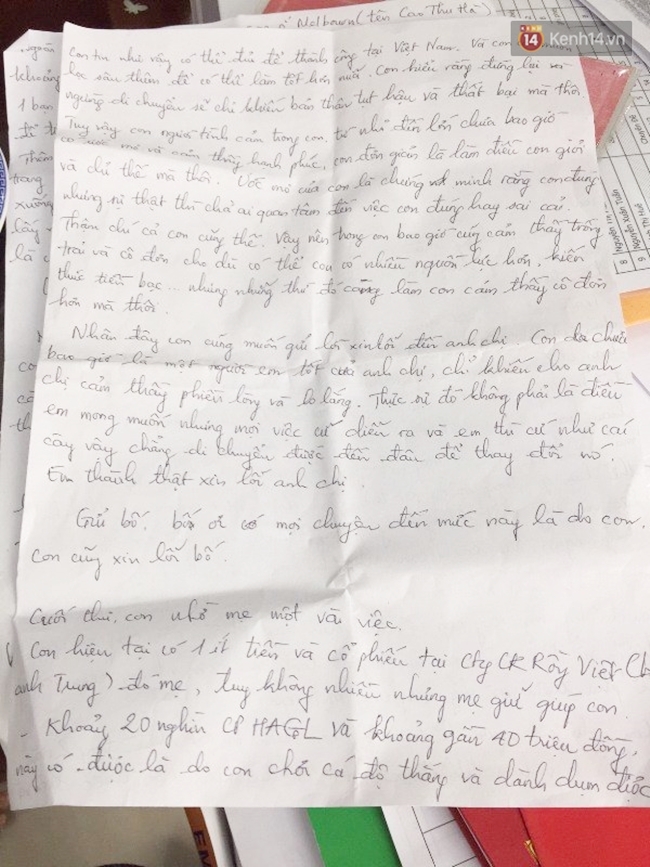 ở Melbourn (tên Cao Thu Hà)
14 Kenh14.vn
Con tin như vậy có thể đủ để thành công tại Việt Nam. Và con
học sâu thêm để có thể làm tốt hơn nữa. Con hiểu rằng dừng lại và
ngừng di chuyển sẽ chỉ khiến bản thân tụt hậu và thất bại mà thôi.
Tuy vậy con người tình cảm trong con, từ nhỏ đến lớn chưa bao giờ
có ước mơ và cảm thấy hạnh phúc, con đơn giản là làm điều con giỏi
và chỉ thế mà thôi. Ước mơ của con là chứng minh rằng con đúng
nhưng sự thật thì chả ai quan tâm đến việc con đúng hay sai cả.
Thậm chí cả con cũng thế. Vậy nên trong con bao giờ cũng cảm thấy trống
trải và cô đơn cho dù có thể con có nhiều nguồn lực hơn, kiến
thức tiền bạc... nhưng những thứ đó càng làm con cảm thấy cô đơn
hơn mà thôi.
Nhân đây con cũng muốn gửi lời xin lỗi đến anh chị. Con chưa
bao giờ là một người em tốt của anh chị, chỉ khiến cho anh
chị cảm thấy phiền lòng và lo lắng. Thực sự đó không phải là điều
em mong muốn nhưng mọi việc cứ diễn ra và em thì cứ như cái
cây vậy chẳng di chuyển được đến đâu để thay đổi nó.
Em thành thật xin lỗi anh chị.
Gửi bố, bố ơi có mọi chuyện đến mức này là do con.
Con cũng xin lỗi bố.
Cuối thư, con nhờ mẹ một vài việc.
Con hiện tại có 1 ít tiền và cổ phiếu tại Cty CK Rồng Việt
anh Trung) đó mẹ, tuy không nhiều nhưng mẹ giữ giúp con.
- Khoảng 20 nghìn CP HAGL và khoảng gần 40 triệu đồng,
này có được là do con chơi cá độ thắng và dành dụm được